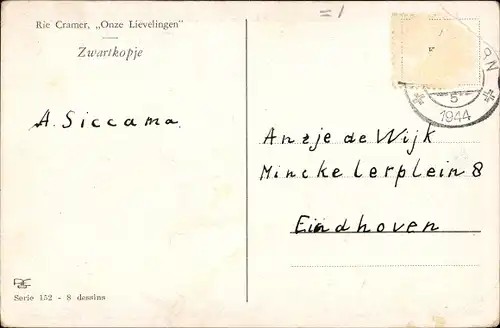 Rie Cramer, „Onze Lievelingen"
Zwartkopje
= 1
5
1944
A. Siccama.
Anzje de Wijk
Minckelerplein 8
Eindhoven
Serie 152 - 8 dessins